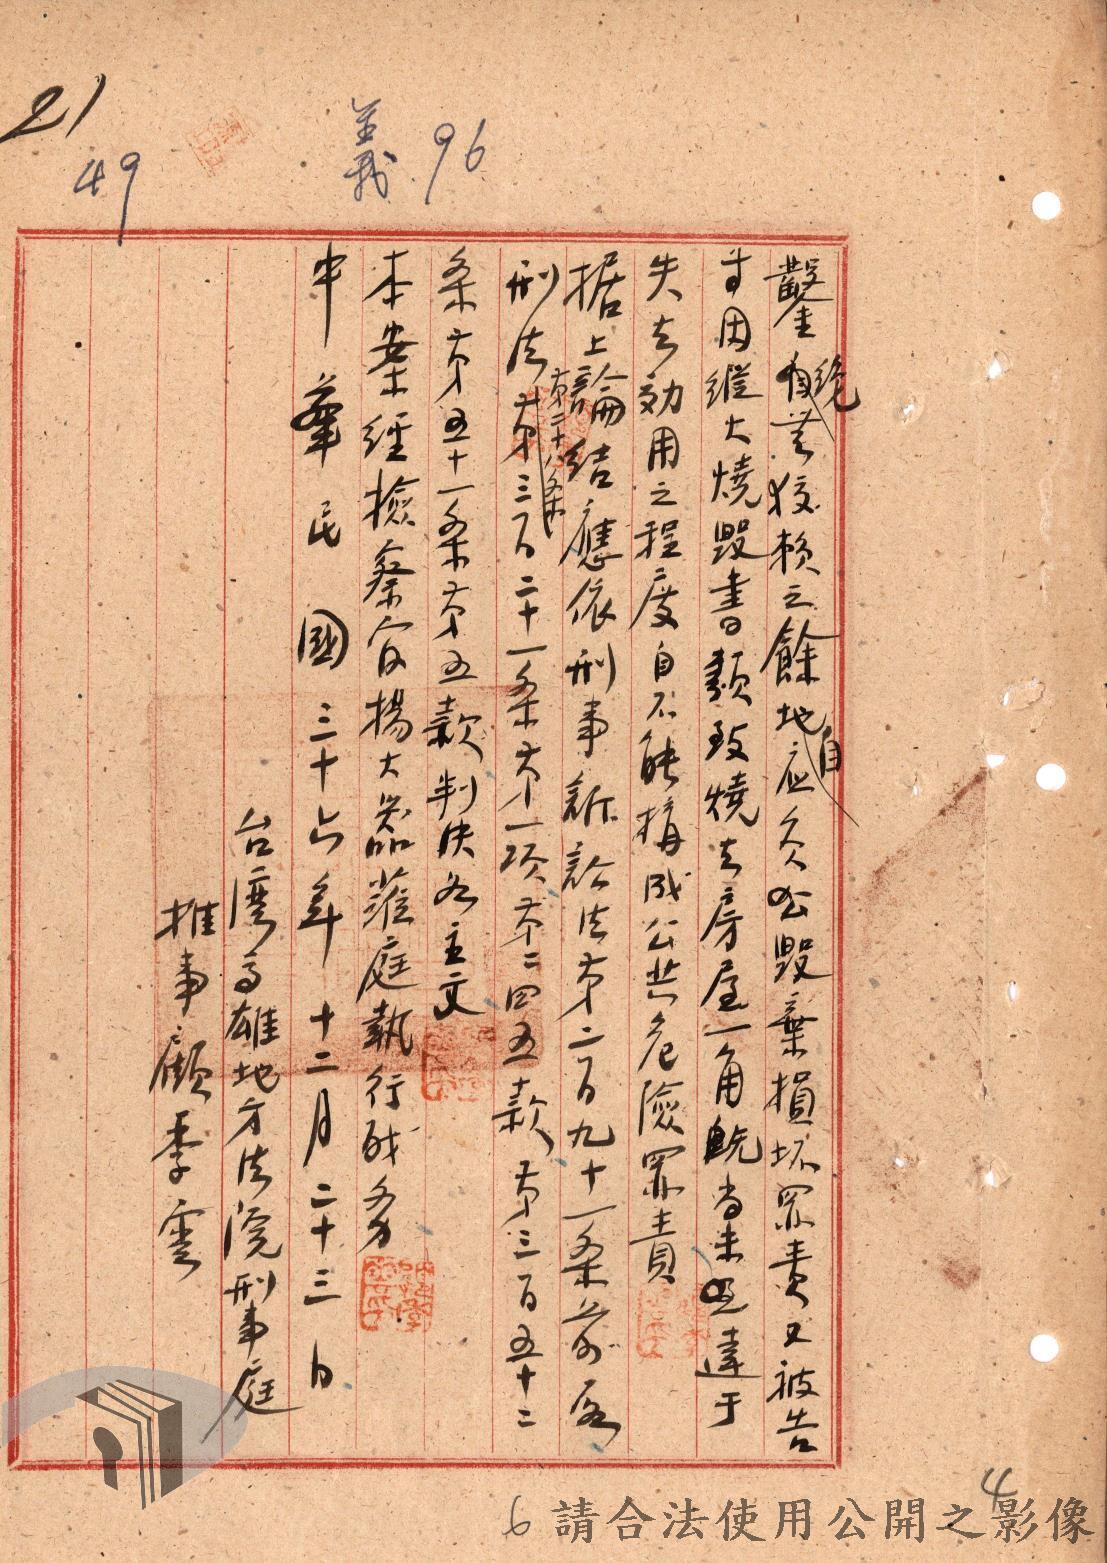 21
49
義
96
鑿絕無狡賴之餘地自应負公毀棄損坏罪責又被告
等因縱火燒毀書類致燒去房屋一角既尚未達于
失去効用之程度自不能構成公共危險罪責
据上論結應依刑事訴訟法第二百九十一条前段
刑法第二十八条第三百二十一条第一項第二四五款第三百五十二
条第五十一条第五款判決如主文
本案經檢察官楊大器蒞庭執行職务
中華民國三十六年十二月二十三日
台灣高雄地方法院刑事庭
推事顧季雲
4
6
請合法使用公開之影像